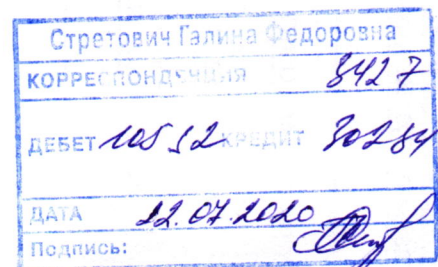 Стретович Галина Федоровна
КОРРЕСПОНДЕНЦИЯ 3427
ДЕБЕТ 105 32 КРЕДИТ 302 34
ДАТА 22.07.2020
Подпись: